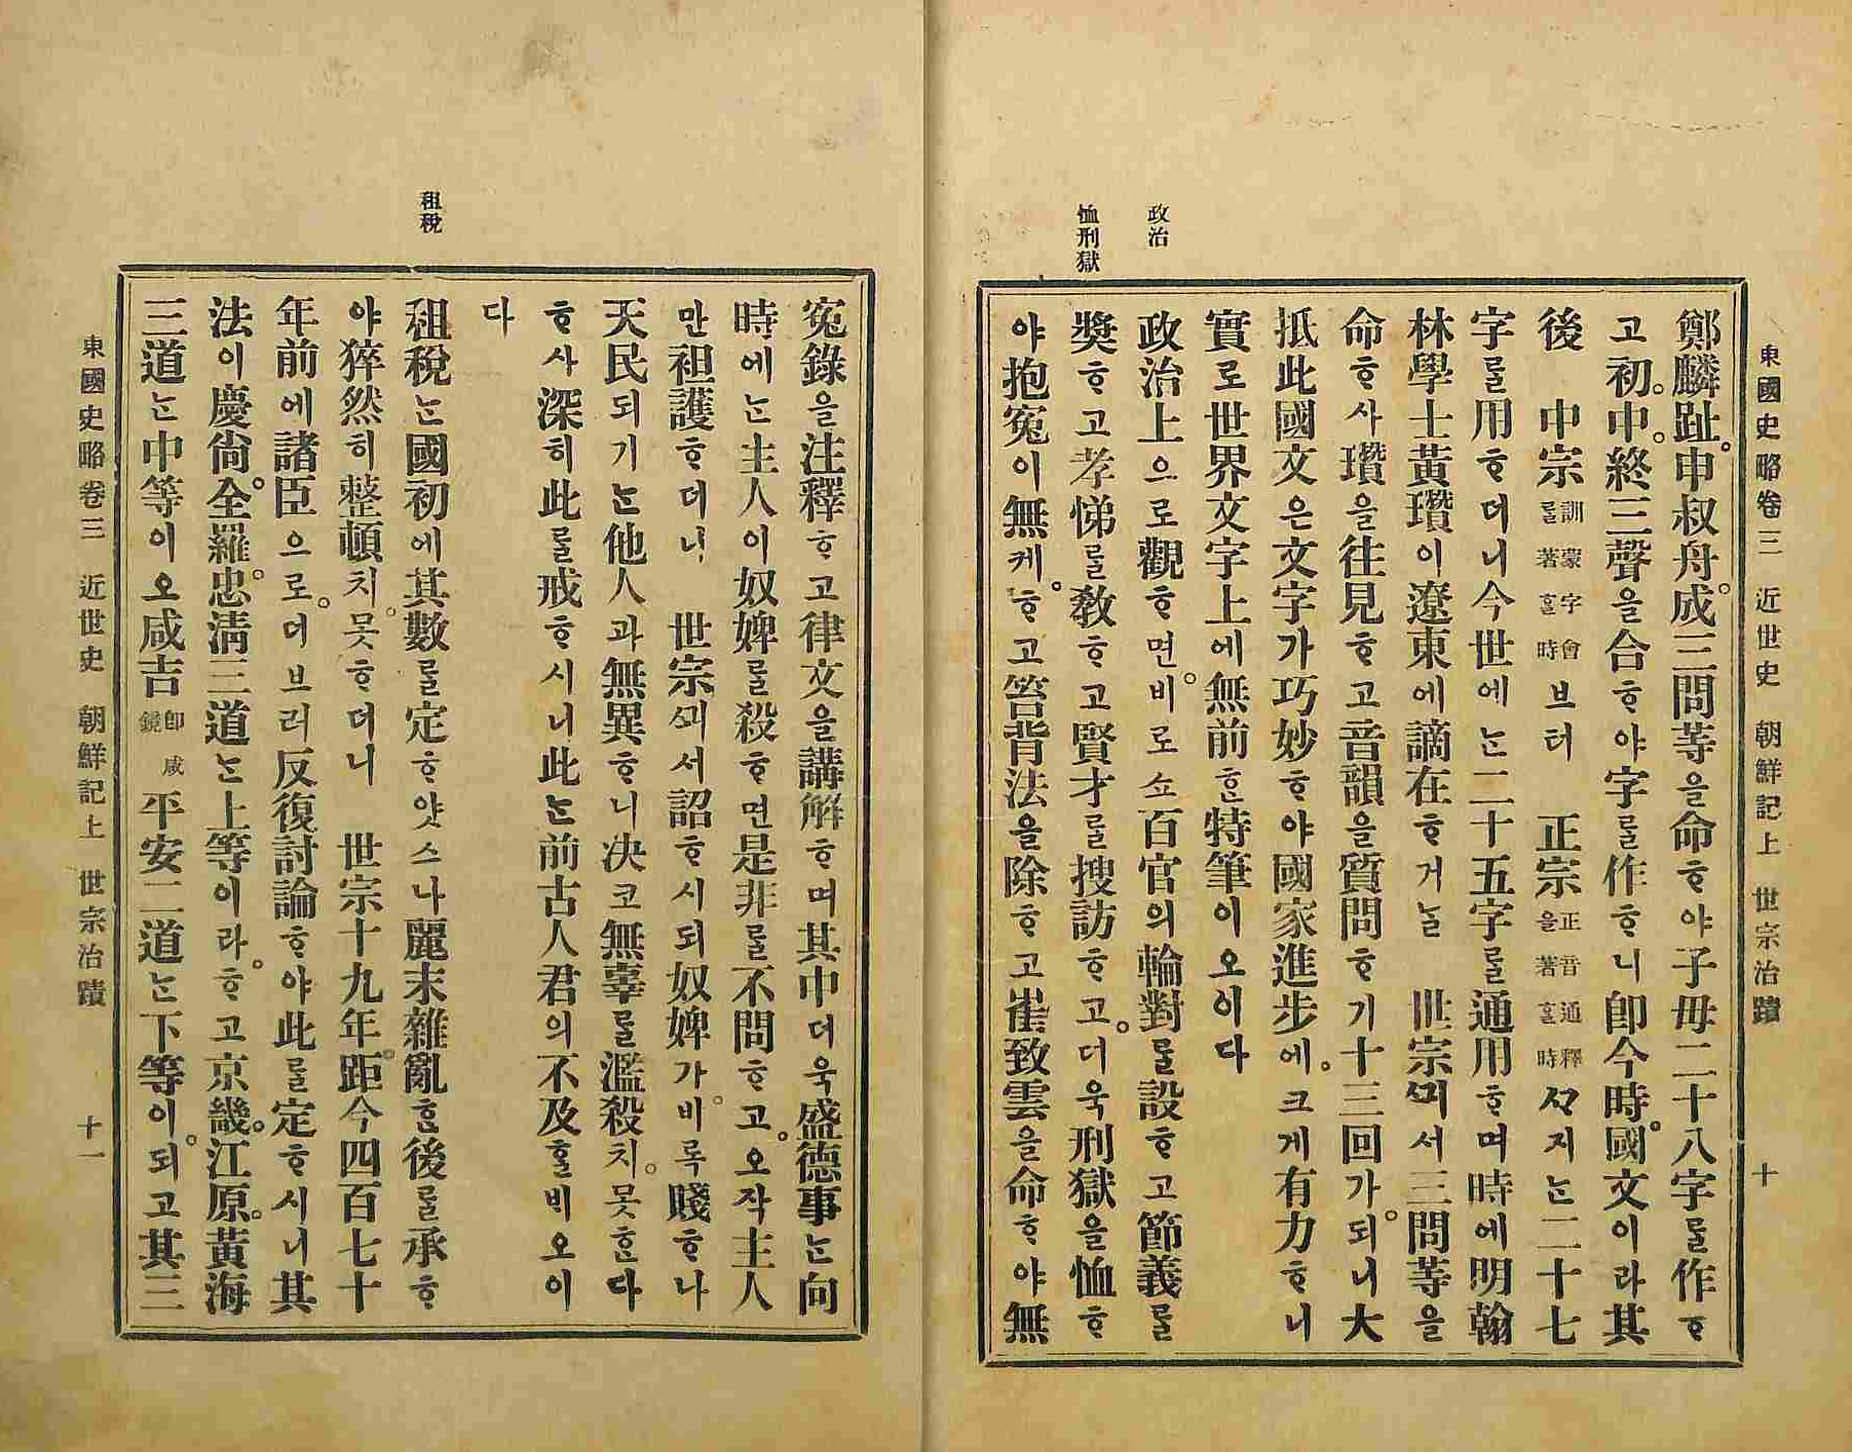 東國史略卷三 近世史 朝鮮記上 世宗治蹟 十
鄭麟趾。申叔舟。成三問等을命ᄒᆞ야子母二十八字ᄅᆞᆯ作ᄒᆞ
고初。中。終三聲을合ᄒᆞ야字ᄅᆞᆯ作ᄒᆞ니卽今時。國文이라其
後 中宗訓蒙字會ᄅᆞᆯ著ᄒᆞᆯ時브터 正宗正音通釋을著ᄒᆞᆯ時ᄭᆞ지ᄂᆞᆫ二十七
字ᄅᆞᆯ用ᄒᆞ더니今世에ᄂᆞᆫ二十五字ᄅᆞᆯ通用ᄒᆞ며時에明翰
林學士黃瓚이遼東에謫在ᄒᆞ거ᄂᆞᆯ 世宗ᄭᅴ서三問等을
命ᄒᆞ사瓚을往見ᄒᆞ고音韻을質問ᄒᆞ기十三回가。되니大
抵此國文은文字가巧妙ᄒᆞ야國家進步에。크게有力ᄒᆞ니
實로世界文字上에無前ᄒᆞᆫ特筆이오이다
政治
政治上으로觀ᄒᆞ면。비로쇼百官의輪對ᄅᆞᆯ設ᄒᆞ고節義ᄅᆞᆯ
恤刑獄
奬ᄒᆞ고孝悌ᄅᆞᆯ敎ᄒᆞ고賢才ᄅᆞᆯ搜訪ᄒᆞ고。더욱刑獄을恤ᄒᆞ
야抱寃이無케。ᄒᆞ고笞背法을除ᄒᆞ고崔致雲을命ᄒᆞ야無
寃錄을注釋ᄒᆞ고律文을講解ᄒᆞ며其中더욱盛德事ᄂᆞᆫ向
時에ᄂᆞᆫ主人이奴婢ᄅᆞᆯ殺ᄒᆞ면是非ᄅᆞᆯ不問ᄒᆞ고。오작主人
만袒護ᄒᆞ더니 世宗ᄭᅴ서詔ᄒᆞ시되奴婢가。비록賤ᄒᆞ나
天民되기ᄂᆞᆫ他人과無異ᄒᆞ니决코無辜ᄅᆞᆯ濫殺치。못ᄒᆞᆫ다
ᄒᆞ사深히此ᄅᆞᆯ戒ᄒᆞ시니此ᄂᆞᆫ前古人君의不及ᄒᆞᆯᄇᆡ오이
다
租稅
租稅ᄂᆞᆫ國初에其數ᄅᆞᆯ定ᄒᆞ얏스나麗末雜亂ᄒᆞᆫ後ᄅᆞᆯ承ᄒᆞ
야猝然히整頓치。못ᄒᆞ더니 世宗十九年。距今四百七十
年前에諸臣으로。더브러反復討論ᄒᆞ야此ᄅᆞᆯ定ᄒᆞ시니其
法이慶尙。全羅。忠淸三道ᄂᆞᆫ上等이라。ᄒᆞ고京畿。江原。黃海
三道ᄂᆞᆫ中等이오咸吉卽咸鏡平安二道ᄂᆞᆫ下等이。되고其三
東國史略卷三 近世史 朝鮮記上 世宗治蹟 十一